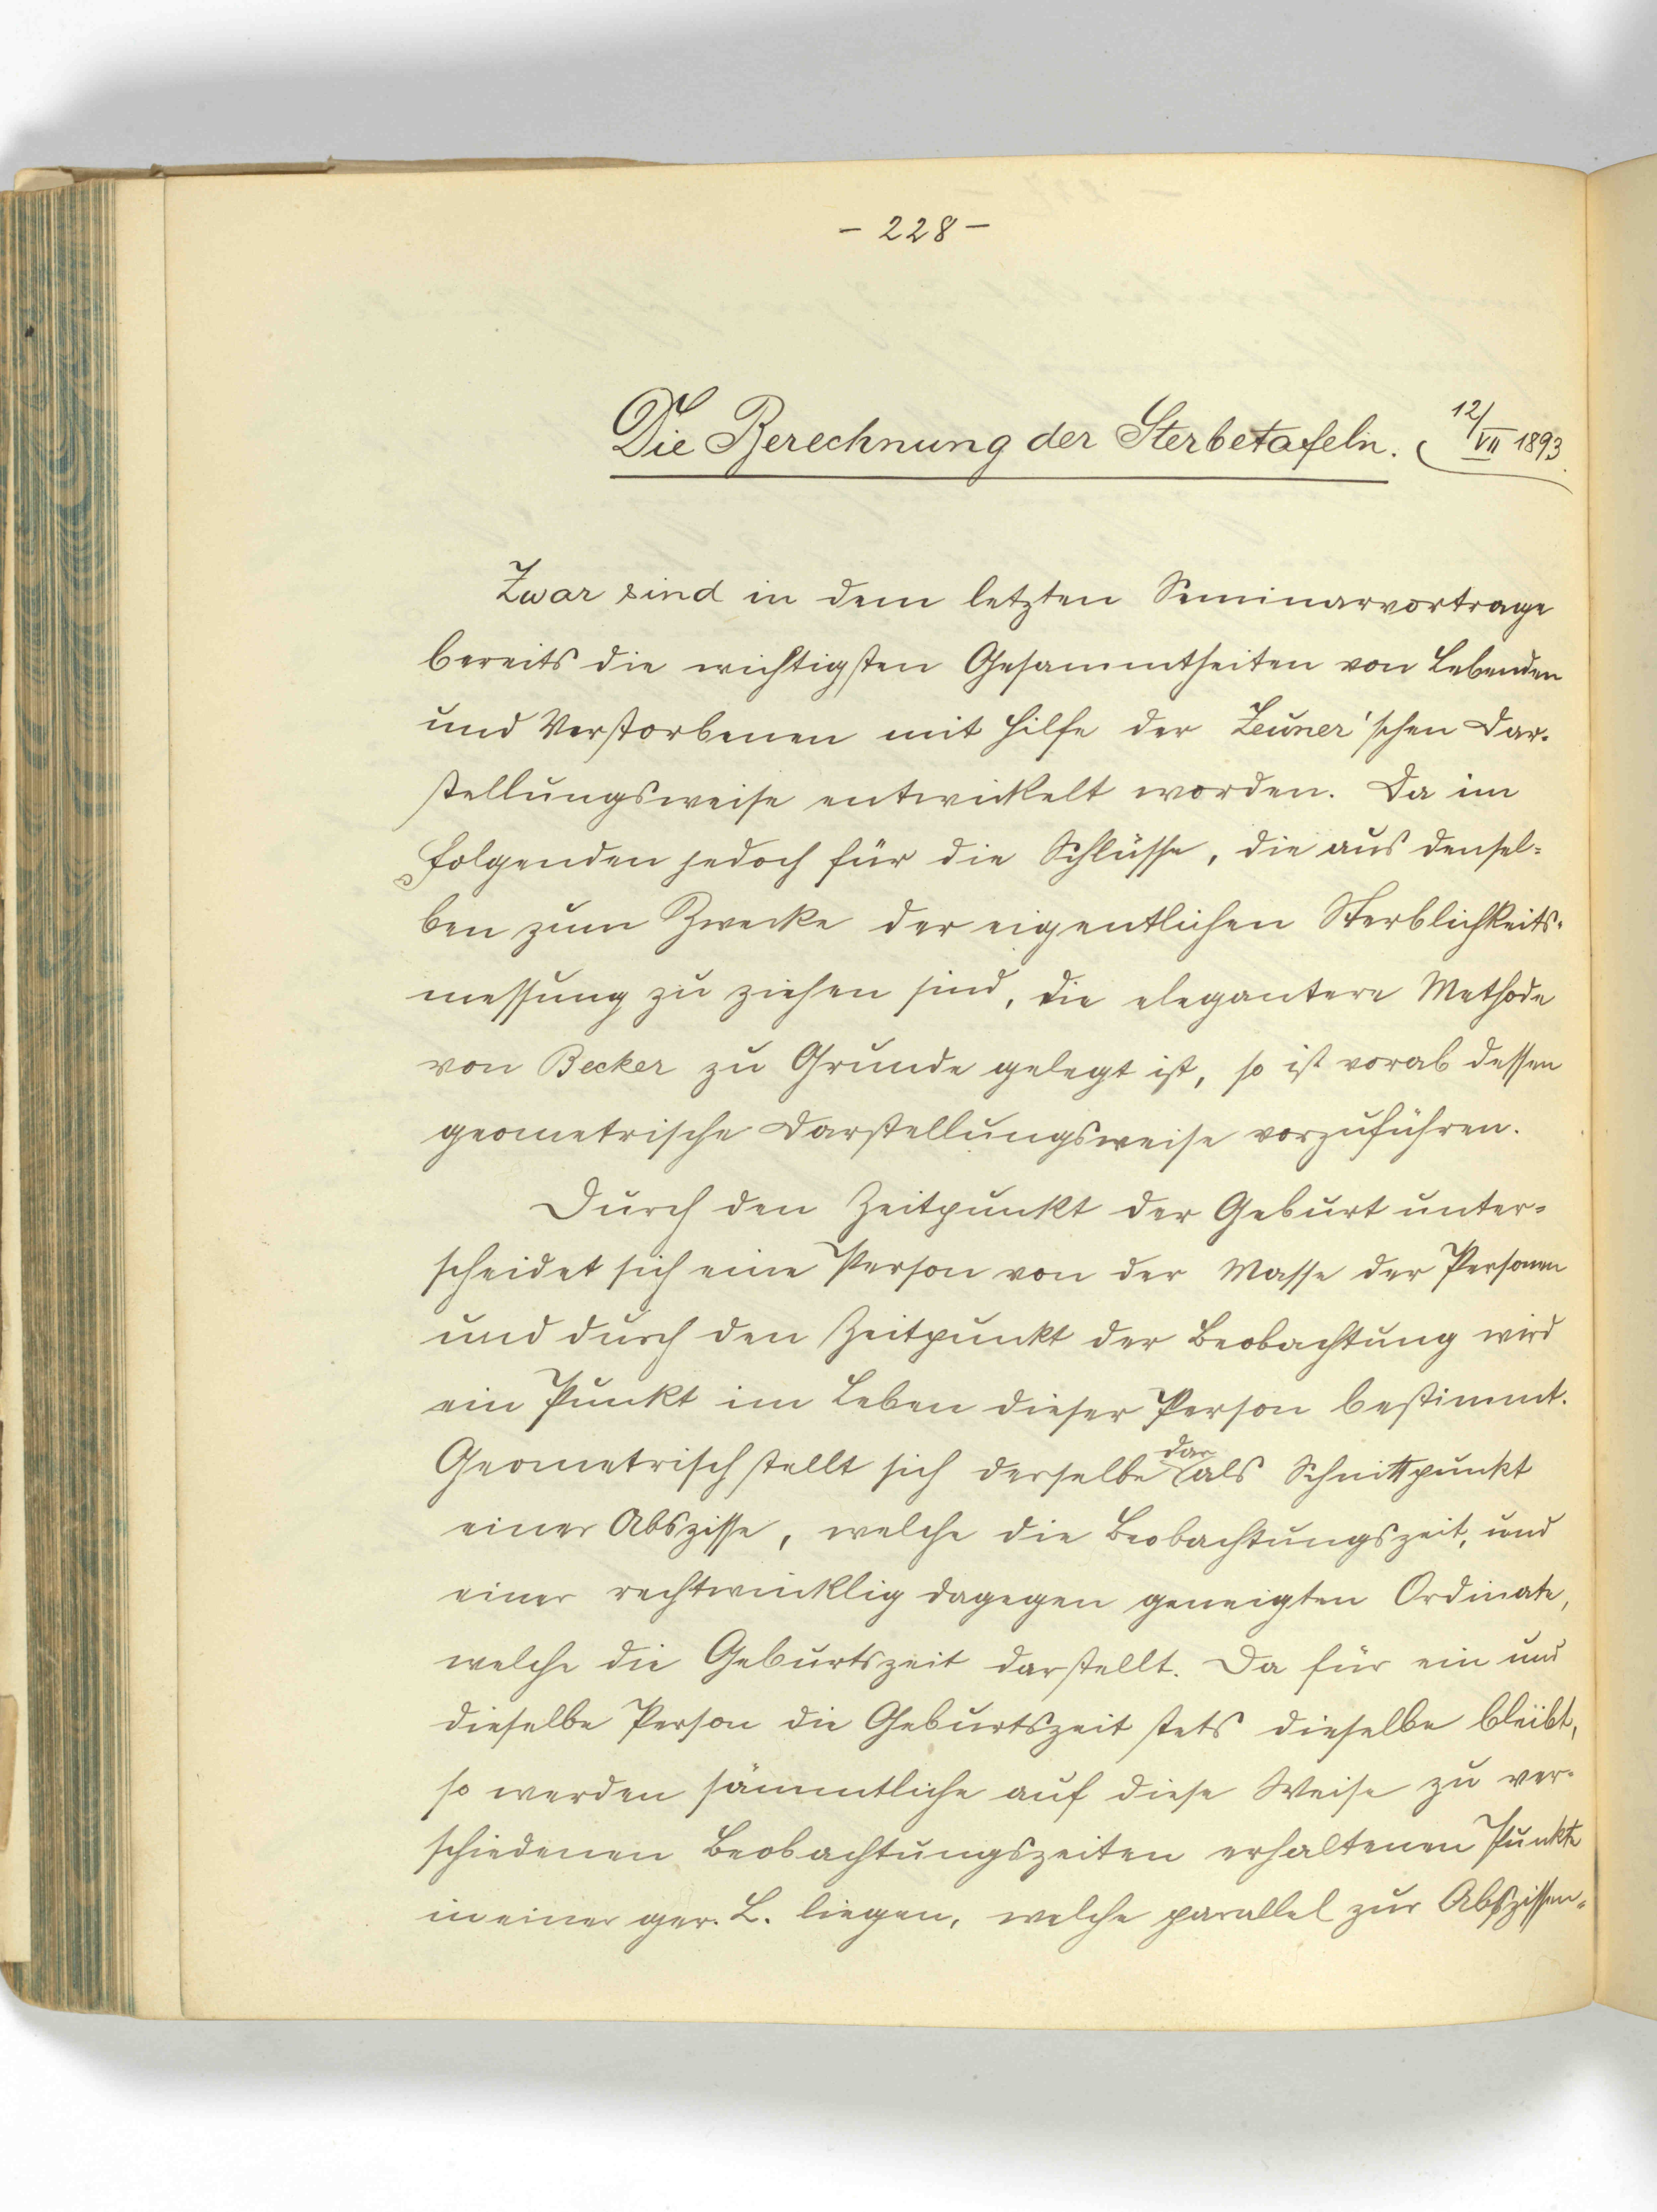 - 228 -
Die Berechnung der Sterbetafeln. (12/VII 1893.
Zwar sind in dem letzten Seminarvortrage
bereits die wichtigsten Gesammtheiten von Lebenden
und Verstorbenen mit Hilfe der Zeuner'schen Dar-
stellungsweise entwickelt worden. Da im
folgenden jedoch für die Schlüsse, die aus densel-
ben zum Zwecke der eigentlichen Sterblichkeits-
messung zu ziehen sind, die elegantere Methode
von Becker zu Grunde gelegt ist, so ist vorab dessen
geometrische Darstellungsweise vorzuführen.
Durch den Zeitpunkt der Geburt unter-
scheidet sich eine Person von der Masse der Personen
und durch den Zeitpunkt der Beobachtung wird
ein Punkt im Leben dieser Person bestimmt.
Geometrisch stellt sich derselbe dar als Schnittpunkt
einer Abszisse, welche die Beobachtungszeit, und
einer rechtwinklig dagegen geneigten Ordinate,
welche die Geburtszeit darstellt. Da für ein und
dieselbe Person die Geburtszeit stets dieselbe bleibt,
so werden sämmtliche auf diese Weise zu ver-
schiedenen Beobachtungszeiten erhaltenen Punkte
in einer ger. L. liegen, welche parallel zur Abszissen-